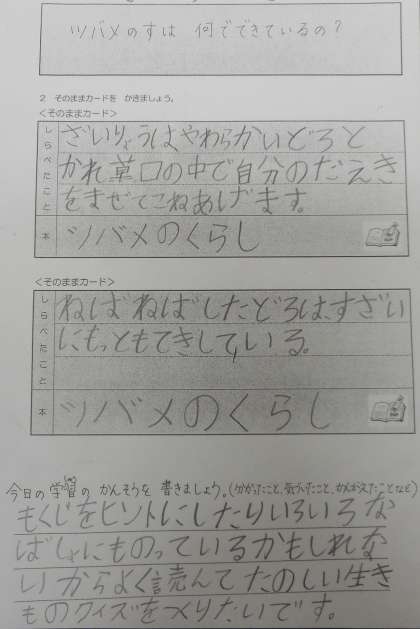 ツバメのすは 何でできているの？
2 そのままカードを かきましょう。
＜そのままカード＞
しらべたこと
ざいりょうはやわらかいどろと
かれ草、口の中で自分のだえき
をまぜてこねあげます。
本
ツバメのくらし
＜そのままカード＞
しらべたこと
ねばねばしたどろは、すざい
にもっともてきしている。
本
ツバメのくらし
今日の学習の かんそうを 書きましょう。(分かったこと、気づいたこと、かんがえたことなど)
もくじをヒントにしたりいろいろな
ばしょにものっているかもしれな
いからよく読んでたのしい生き
ものクイズをつくりたいです。